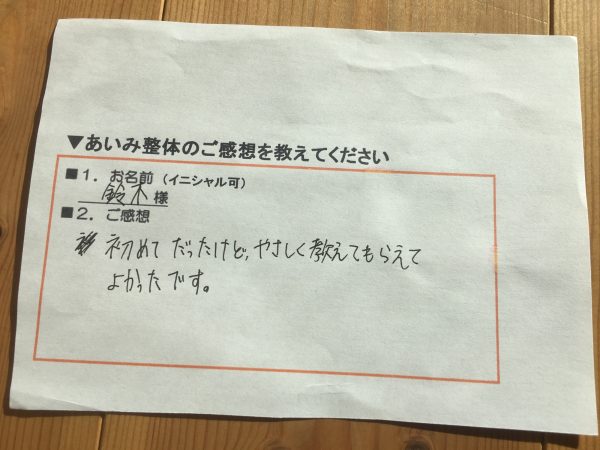 ▼あいみ整体のご感想を教えてください
■1．お名前（イニシャル可）
鈴木様
■2．ご感想
初めてだったけど、やさしく教えてもらえて
よかったです。